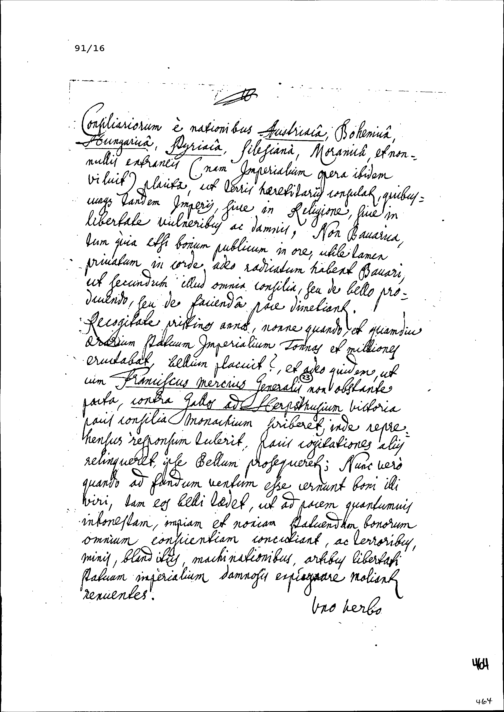 91/16
Consiliariorum è nationibus Austriaca, Bohemica,
Hungarica, Styriaca, Silesiana, Moravica, et non-
nullis extraneis (nam Imperialium opera ibidem
viluit) placita, ut terris haereditariis consulat, quibus-
cunqs tandem Imperij, siue in Religione, siue in
libertate vulneribus ac damnis; Non Bauarica,
tum quia etsi bonum publicum in ore, utile tamen
priuatum in corde adeo radicatum habent Bauari,
ut secundum illud omnia consilia, seu de bello pro-
ducendo, seu de facienda pace
Recogitate pristinos annos, nonne quando, et quamdiu
Statuum Imperialium Tonnas et milliones
eructabat, bellum placuit?, et adeo quidem, ut
cum Franciscus mercius Generalis non obstante
parta, contra Gallos ad victoria
pacis consilia Monachium scriberet, inde repre-
hensus responsum tulerit, pacis cogitationes alijs
relinqueret, ipse Bellum prosequeret; Nunc verò
quando ad fundum ventum esse cernunt boni illi
viri, tam eos belli taedet, ut ad pacem quantumuis
inhonestam, impiam et noxiam Statuendam bonorum
omnium conscientiam concutiant, ac terroribus,
minis, blanditijs, machinationibus, artibus libertati
Statuum imperialium damnosis moliant
renuentes.
Uno verbo
464
464